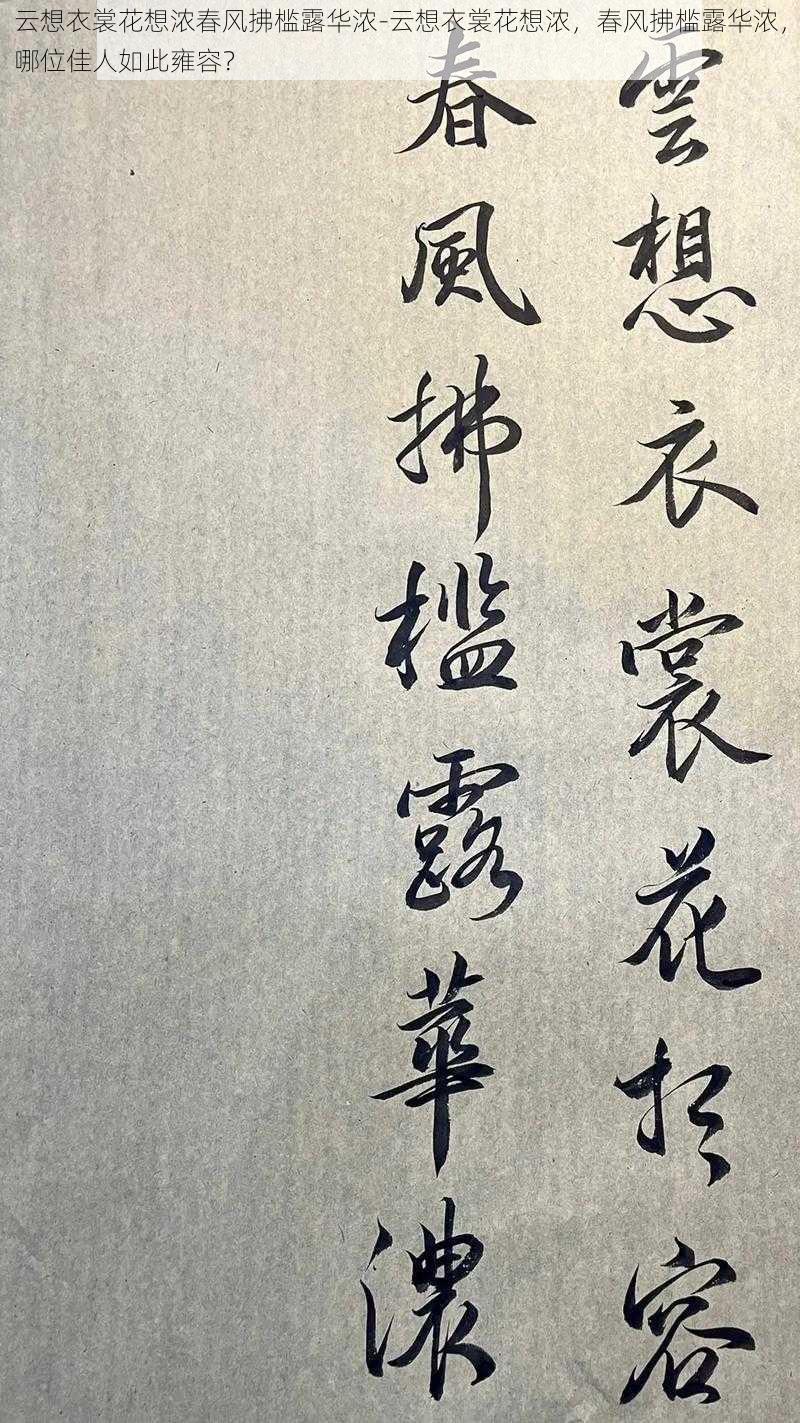 云想衣裳花想浓春风拂槛露华浓-云想衣裳花想浓，春风拂槛露华浓，
哪位佳人如此雍容？
雲想衣裳花想容
春風拂槛露華濃